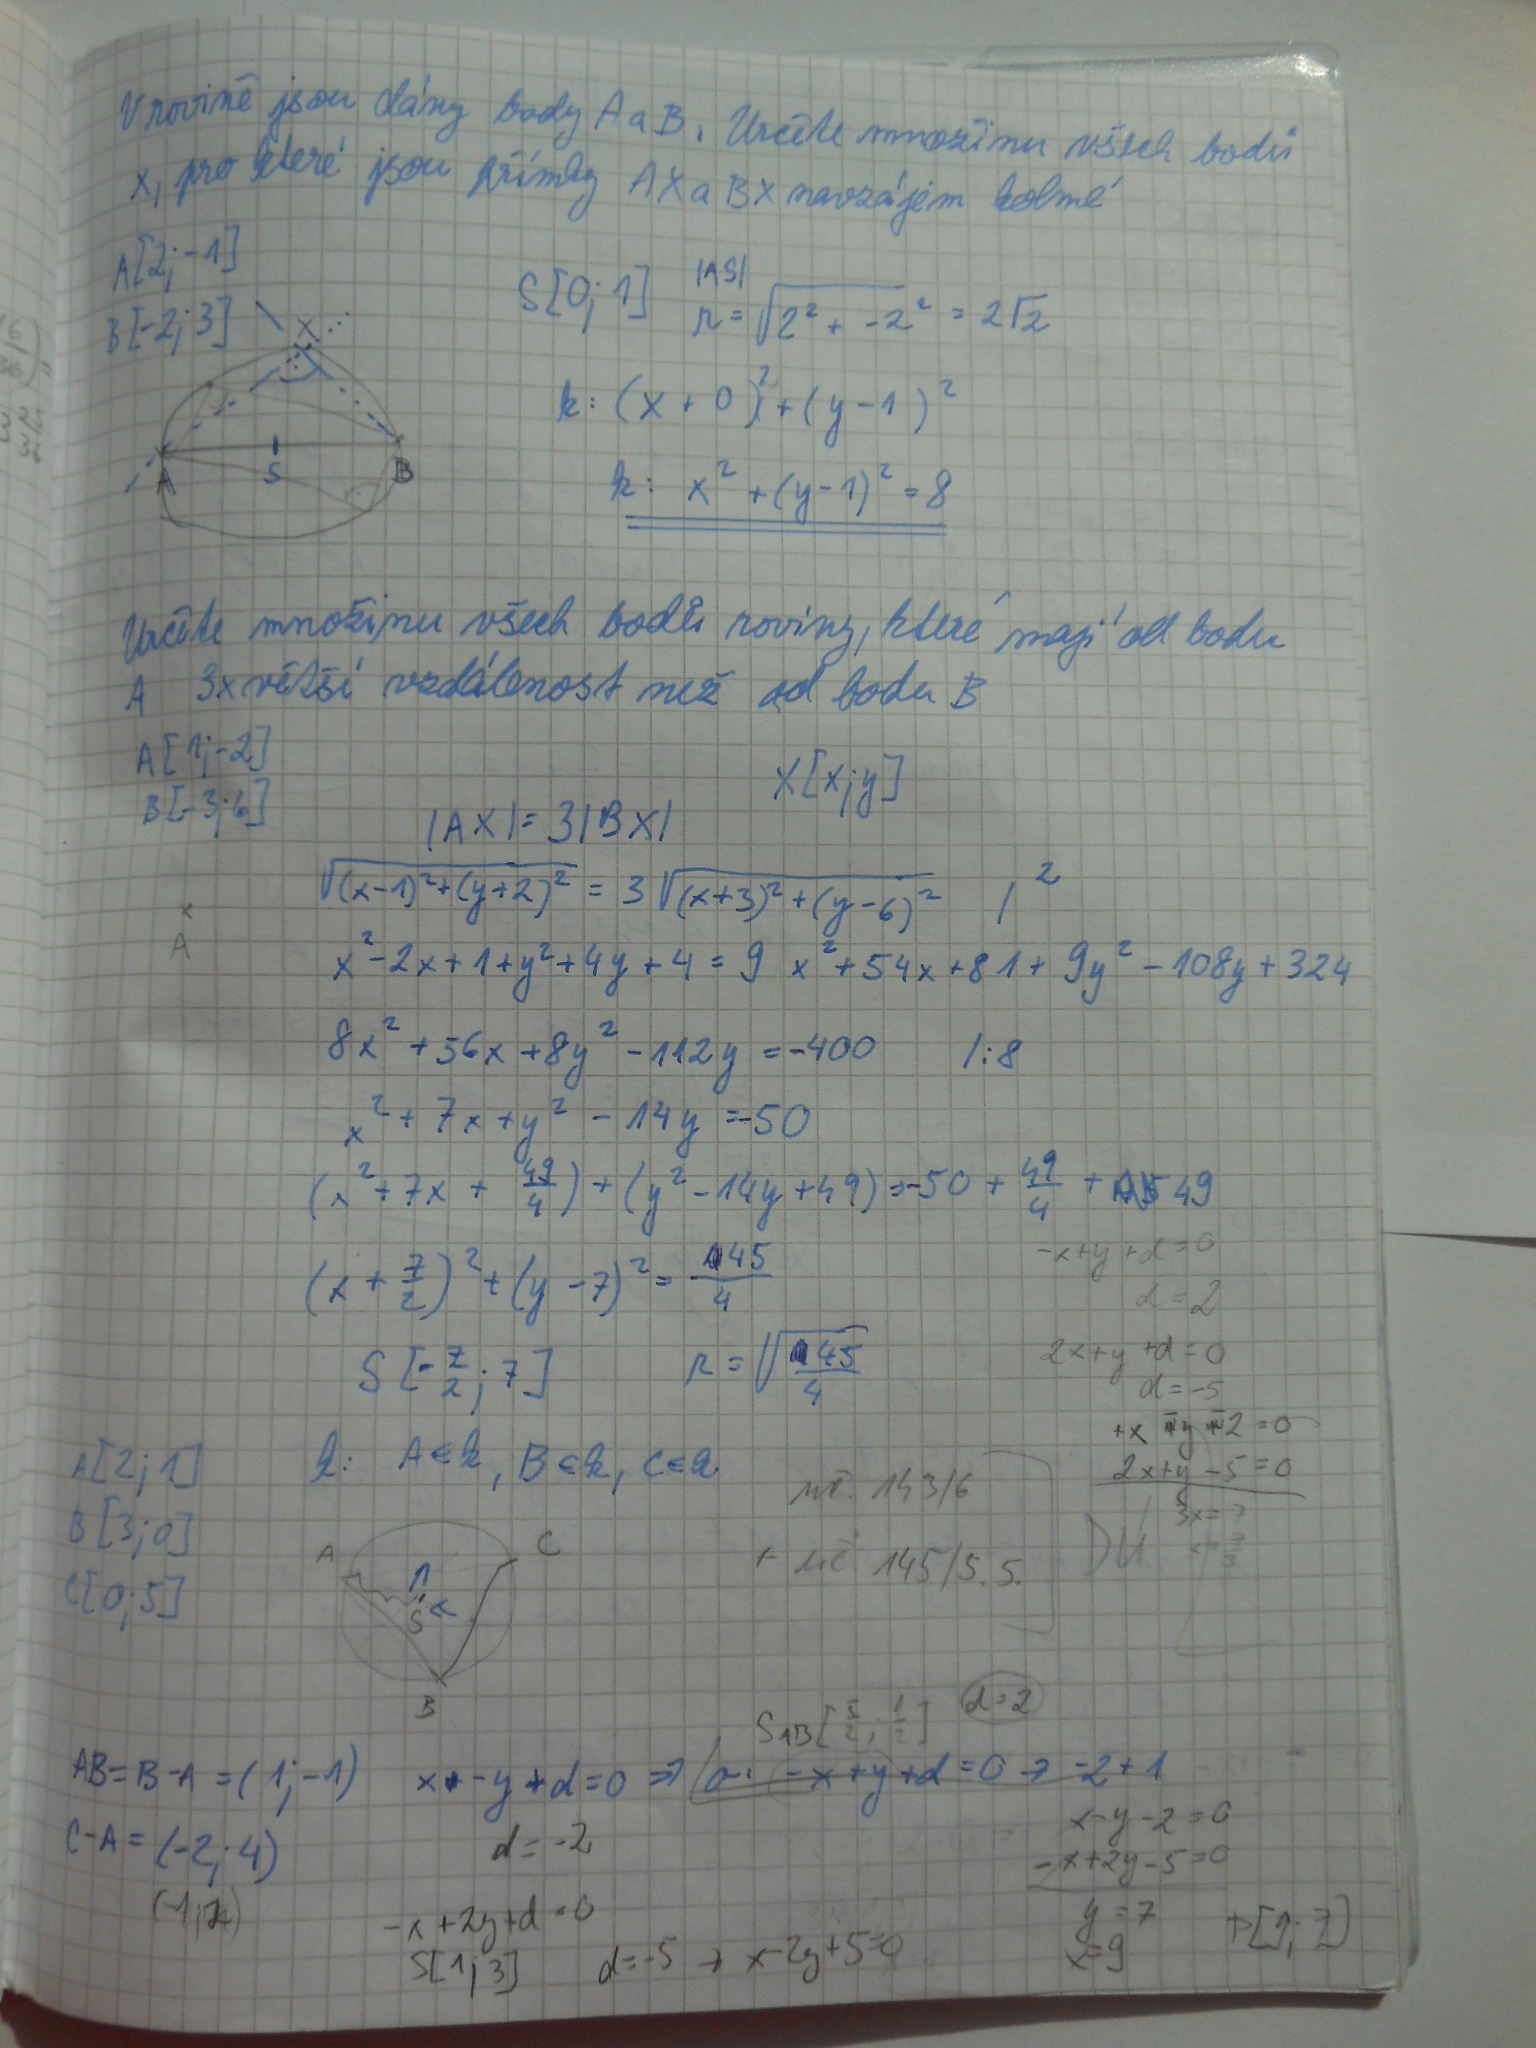 V rovině jsou dány body A a B. Určete množinu všech bodů
X, pro které jsou přímky AX a BX navzájem kolmé
A[2;-1]
B[-2;3]
S[0;1] |AS|
r = √(2² + -2²) = 2√2
X
k: (x + 0)² + (y - 1)²
A S B
k: x² + (y-1)² = 8
Určete množinu všech bodů roviny, které mají od bodu
A 3x větší vzdálenost než od bodu B
A[1;-2]
B[-3;6]
X[x;y]
|AX| = 3|BX|
√((x-1)²+(y+2)²) = 3√((x+3)²+(y-6)²) /²
x
A
x²-2x+1+y²+4y+4 = 9x²+54x+81+9y²-108y+324
8x²+56x+8y²-112y = -400 /:8
x²+7x+y²-14y = -50
(x²+7x+49/4)+(y²-14y+49) = -50+49/4+49
(x+7/2)²+(y-7)² = 45/4
S[-7/2;7] r = √(45/4)
-x+y+d=0
d=2
2x+y+d=0
d=-5
+x-y-2=0
2x+y-5=0
3x=7
A[2;1]
B[3;0]
C[0;5]
k: A∈k, B∈k, C∈k
A C
S
B
uč. 143/6
+ uč 145/5.5.
DÚ
S_AB[5/2;1/2] d=2
AB=B-A=(1;-1) x-y+d=0 ⇒ -x+y+d=0 → -2+1
C-A=(-2;4) d=-2
x-y-2=0
-x+2y-5=0
y=7
x=9
P[9;7]
-x+2y+d=0
S[1;3] d=-5 → x-2y+5=0